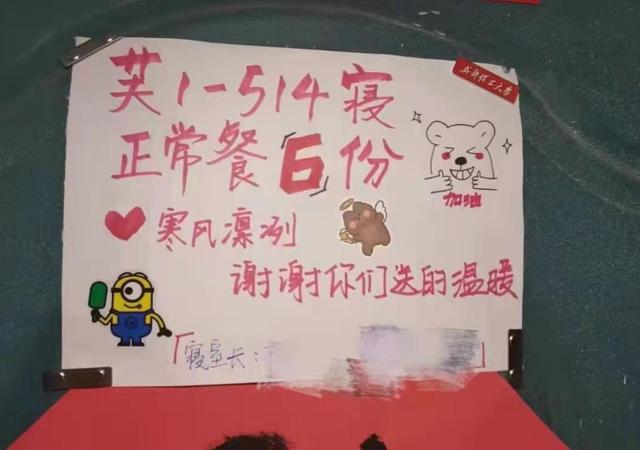 成都理工大学
芙1-514寝
正常餐6份
加油
寒风凛冽
谢谢你们送的温暖
寝室长: